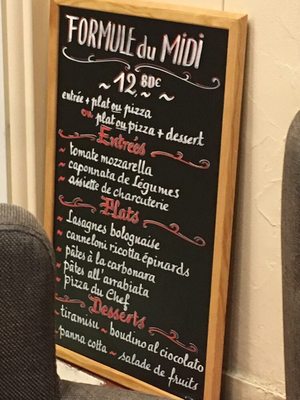 FORMULE du MiDi
~ 12,80€ ~
entrée + plat ou pizza
ou plat ou pizza + dessert
Entrées
~ tomate mozzarella
~ caponnata de Légumes
~ assiette de charcuterie
Plats
~ Lasagnes bolognaise
~ canneloni ricotta épinards
~ pâtes à la carbonara
~ pâtes all'arrabiata
~ Pizza du Chef
Desserts
~ tiramisu ~ boudino al ciocolato
~ panna cotta ~ salade de fruits